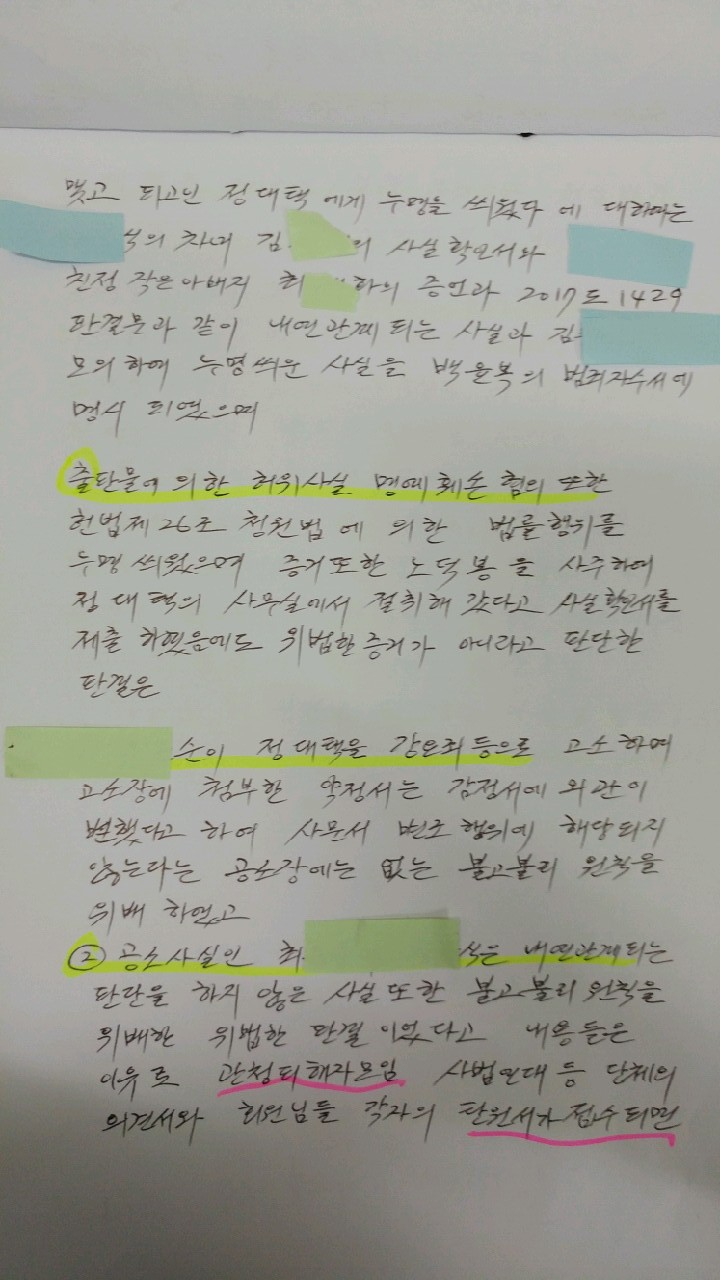 맺고 피고인 정대택에게 누명을 씌웠다 에 대하여는
석의 차녀 김 의 사실확인서와
친정 작은아버지 최 하의 증언과 2017도1429
판결문과 같이 내연관계 되는 사실과 김
모의하여 누명씌운 사실을 백윤복의 범죄자수서에
명시 되였으며
출판물에 의한 허위사실 명예훼손 혐의 또한
헌법제26조 청원법에 의한 법률행위를
누명 씌웠으며 증거또한 노덕봉을 사주하여
정대택의 사무실에서 절취해 갔다고 사실확인서를
제출 하였음에도 위법한증거가 아니라고 판단한
판결은
순이 정대택을 강요죄등으로 고소하며
고소장에 첨부한 약정서는 감정서에 외관이
변했다고 하여 사문서 변조행위에 해당되지
않는다는 공소장에는 없는 불고불리 원칙을
위배 하였고
② 공소사실인 최 석은 내연관계되는
판단을 하지 않은 사실또한 불고불리원칙을
위배한 위법한 판결이었다고 내용들은
이유로 관청피해자모임 사법연대등 단체의
의견서와 회원님들 각자의 탄원서가 접수되면